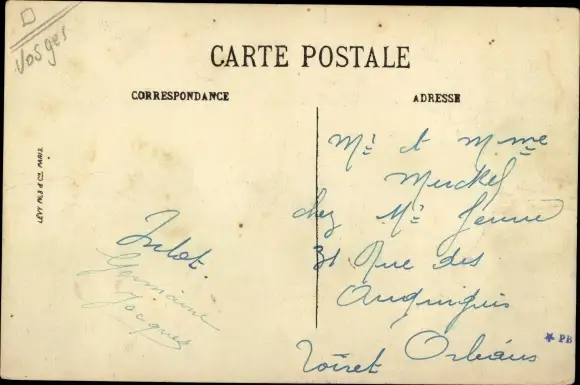 Vosges
CARTE POSTALE
CORRESPONDANCE
ADRESSE
LÉVY FILS & Cie, PARIS
Mr et Mme
Merckel
chez Mr
31 Rue des
Loiret Orléans
Germaine
Jacques
PB